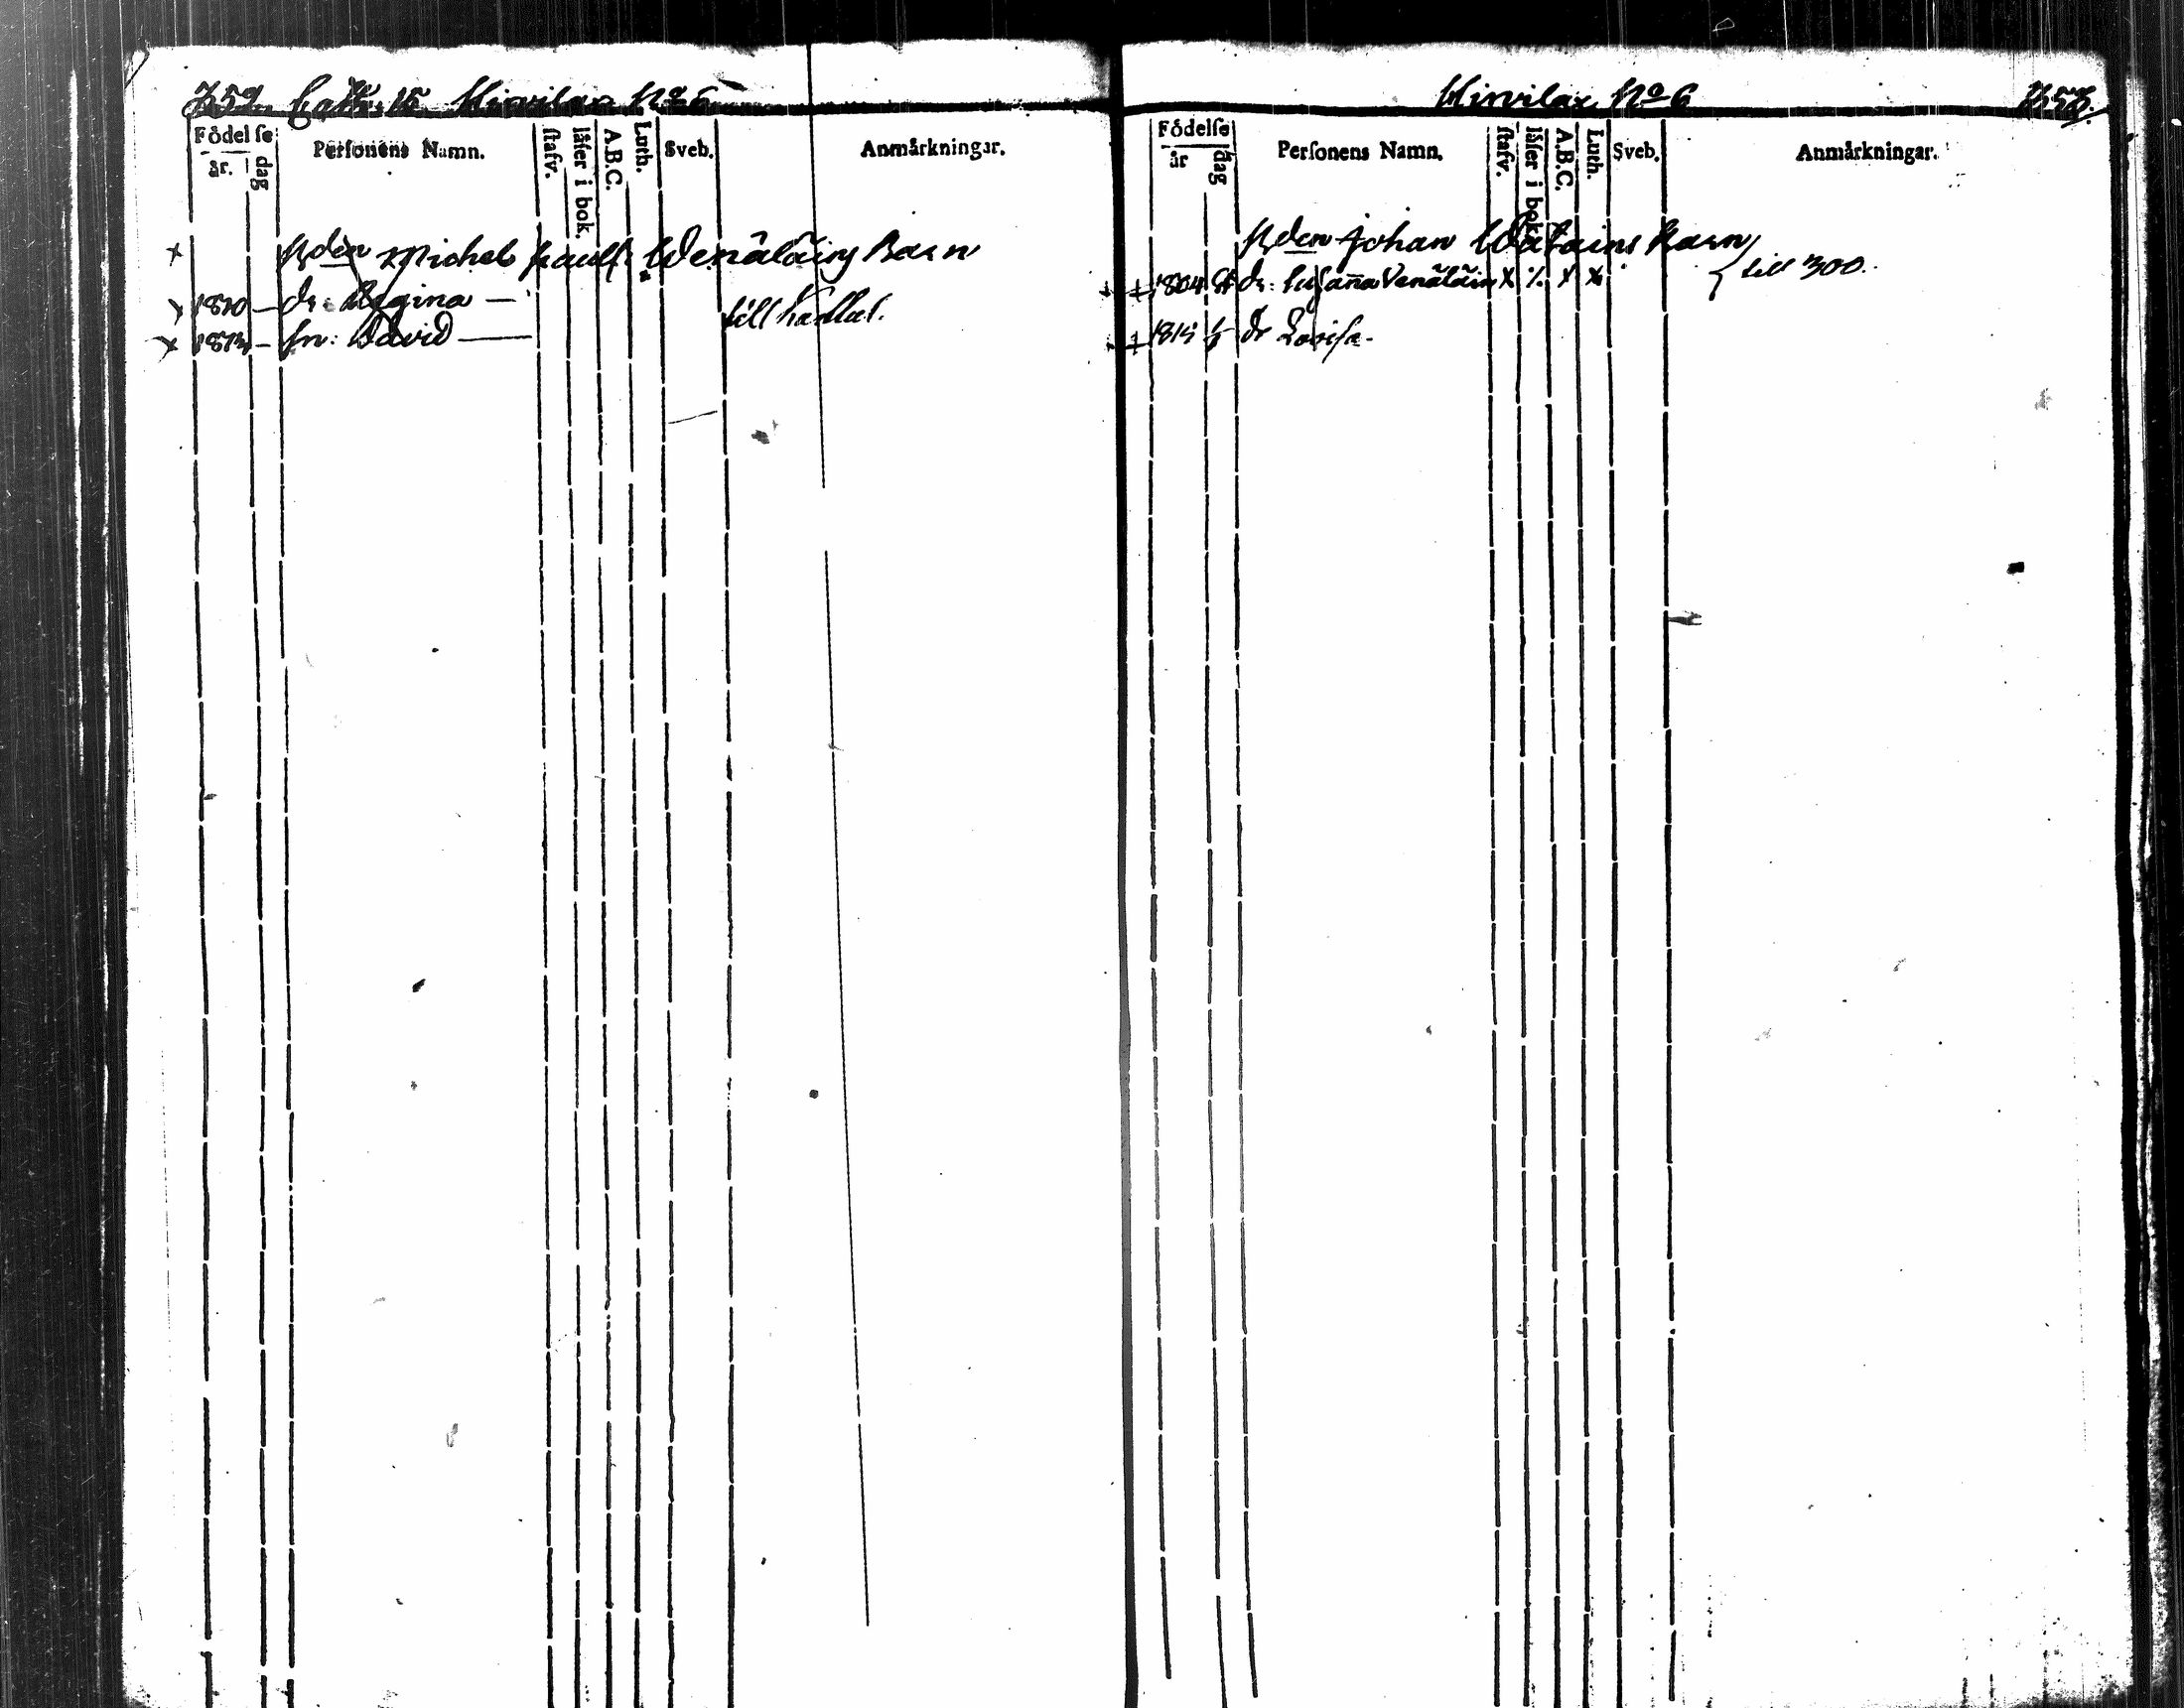 Hirvilax No 6
Födelse
år. dag Personens Namn. stafv. läser i bok. A.B.C. Luth. Sveb. Anmärkningar.
Michel Paulss. Wenäläins Barn
1810 — dr: Regina —
till Kadlal.
sn: David —
Hirvilax No 6
Födelse
år dag Personens Namn. stafv. läser i bok. A.B.C. Luth. Sveb. Anmärkningar.
Johan Barn
1804 dr: Susaña Venäläin x ٪ x x
till 300.
1815 dr Lovisa.